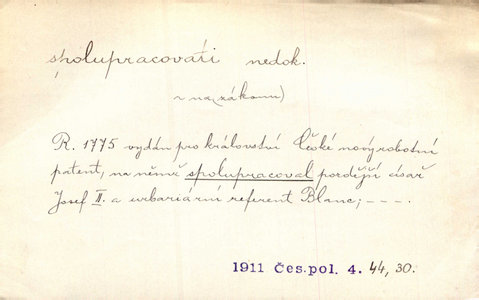 spolupracovati nedok.
~ na (zákonu)
R. 1775 vydán pro království České nový robotní
patent, na němž spolupracoval pozdější císař
Josef II. a urbariární referent Blanc; ----.
1911 Čes. pol. 4. 44, 30.